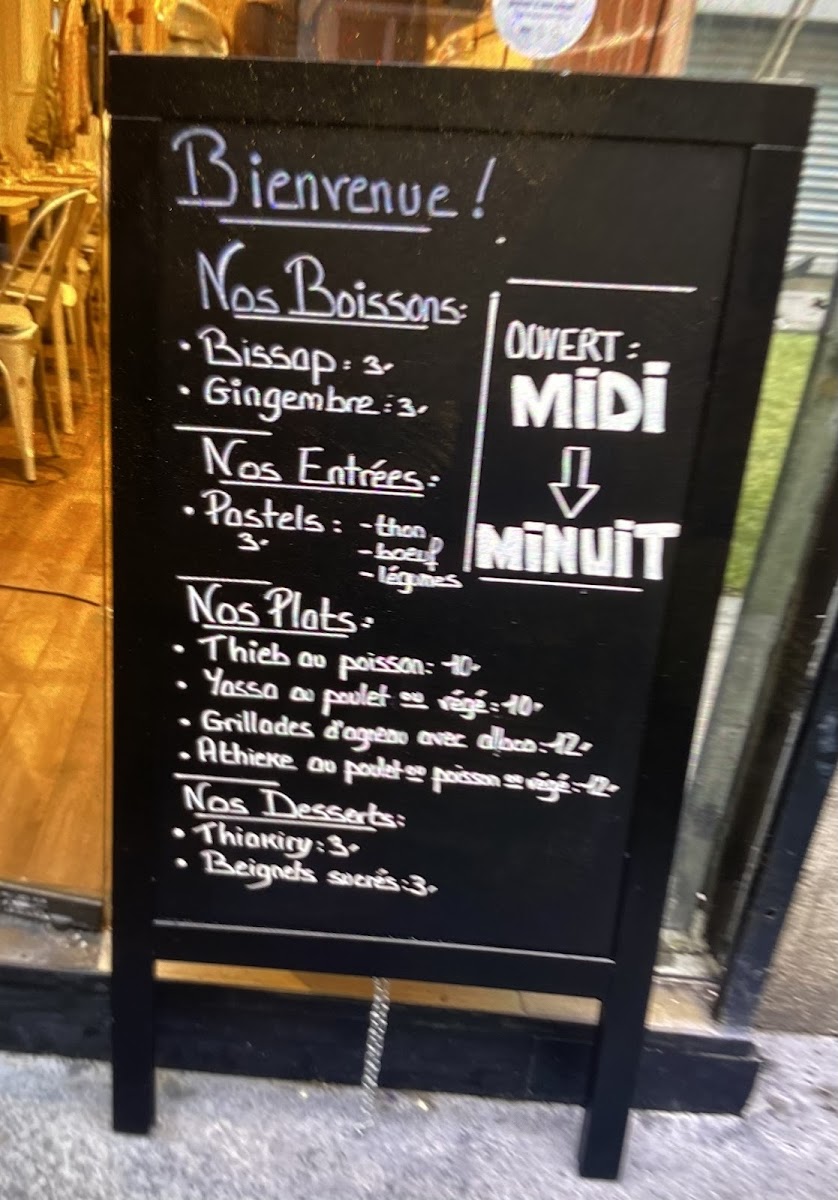 Bienvenue !
Nos Boissons:
• Bissap : 3.-
• Gingembre : 3.-
Nos Entrées:
• Pastels : - thon
3.-
- boeuf
- légumes
Nos Plats:
• Thieb au poisson: 10.-
• Yassa au poulet ou végé: 10.-
• Grillades d'agneau avec alloco: 12.-
• Athieke au poulet ou poisson ou végé: 12.-
Nos Desserts:
• Thiakiry: 3.-
• Beignets sucrés: 3.-
OUVERT :
MiDi
⇩
MiNUiT